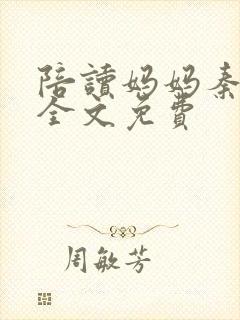 陪讀妈妈秦
全文免費
周敏芳